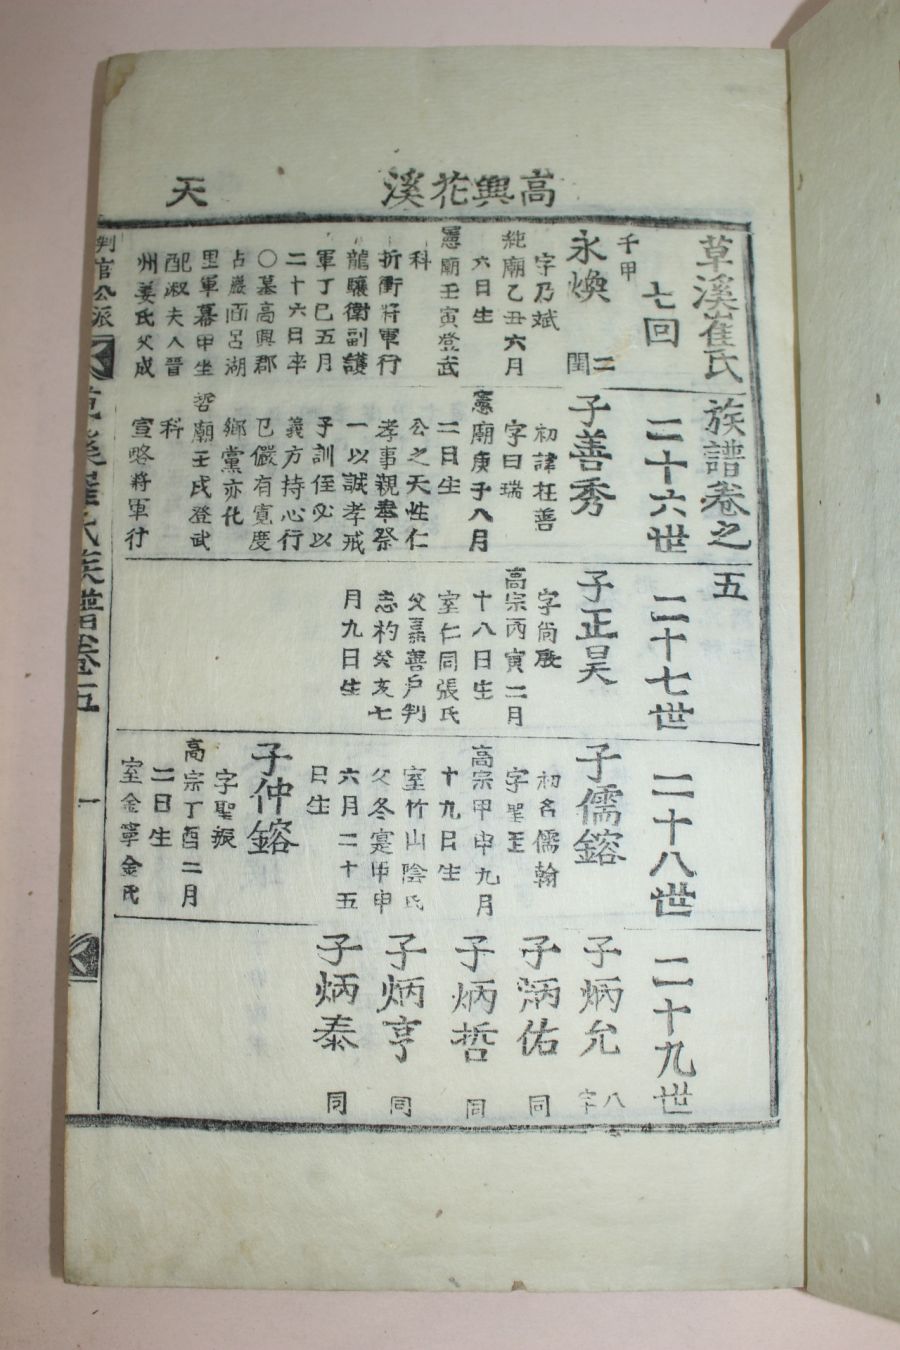 高興花溪
天
草溪崔氏族譜卷之五
七回
千甲
永煥
二
閏
字乃斌
純廟乙丑六月
六日生
憲廟壬寅登武
科
折衝將軍行
龍驤衛副護
軍丁巳五月
二十六日卒
〇墓高興郡
占巖面呂湖
里軍幕甲坐
配淑夫人晋
州姜氏父成
二十六世
子善秀
初諱枉善
字曰瑞
憲廟庚子八月
二日生
公之天性仁
孝事親奉祭
一以誠孝戒
子訓侄必以
義方持心行
己儼有寬度
鄉黨亦化
哲廟壬戌登武
科
宣略將軍行
二十七世
子正昊
字尙殷
高宗丙寅二月
十八日生
室仁同張氏
父嘉善戶判
志杓癸亥七
月九日生
二十八世
子儒鎔
初名儒翰
字聖玉
高宗甲申九月
十九日生
室竹山陰氏
父冬寔甲申
六月二十五
日生
子仲鎔
字聖振
高宗丁酉二月
二日生
室金寧金氏
二十九世
子炳允
八
字
子炳佑
同
子炳哲
同
子炳亨
同
子炳泰
同
判官公派
草溪崔氏族譜卷五
一